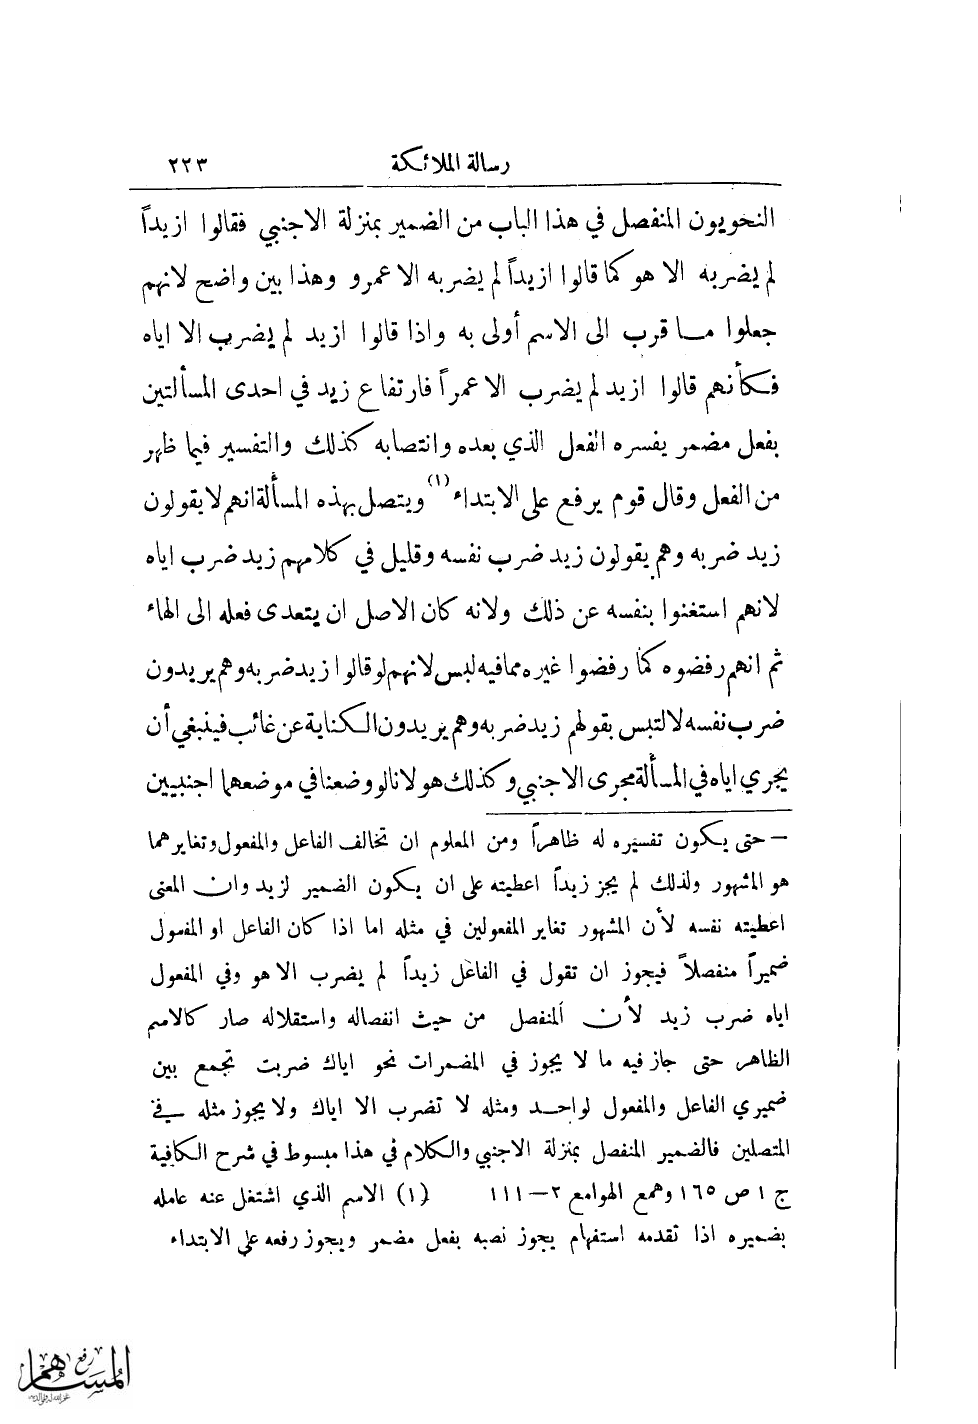 رسالة الملائكة ٢٢٣
النحويون المنفصل في هذا الباب من الضمير بمنزلة الاجنبي فقالوا ازيداً
لم يضربه الا هو كما قالوا ازيداً لم يضربه الا عمرو وهذا بين واضح لانهم
جعلوا مـا قرب الى الاسم أولى به واذا قالوا ازيد لم يضرب الا اياه
فكأنهم قالوا ازيد لم يضرب الا عمراً فارتفاع زيد في احدى المسألتين
بفعل مضمر يفسره الفعل الذي بعده وانتصابه كذلك والتفسير فيما ظهر
من الفعل وقال قوم يرفع على الابتداء (١) ويتصل بهذه المسألة انهم لا يقولون
زيد ضربه وهم يقولون زيد ضرب نفسه وقليل في كلامهم زيد ضرب اياه
لانهم استغنوا بنفسه عن ذلك ولانه كان الاصل ان يتعدى فعله الى الهاء
ثم انهم رفضوه كما رفضوا غيره مما فيه لبس لانهم لو قالوا زيد ضربه وهم يريدون
ضرب نفسه لالتبس بقولهم زيد ضربه وهم يريدون الكناية عن غائب فينبغي أن
يجري اياه في المسألة مجرى الاجنبي وكذلك هو لانا لو وضعنا في موضعهما اجنبيين
— حتى يكون تفسيره له ظاهراً ومن المعلوم ان تخالف الفاعل والمفعول وتغايرهما
هو المشهور ولذلك لم يجز زيداً اعطيته على ان يكون الضمير لزيد وان المعنى
اعطيته نفسه لأن المشهور تغاير المفعولين في مثله اما اذا كان الفاعل او المفعول
ضميراً منفصلاً فيجوز ان تقول في الفاعل زيداً لم يضرب الا هو وفي المفعول
اياه ضرب زيد لأن المنفصل من حيث انفصاله واستقلاله صار كالاسم
الظاهر حتى جاز فيه ما لا يجوز في المضمرات نحو اياك ضربت تجمع بين
ضميري الفاعل والمفعول لواحد ومثله لا تضرب الا اياك ولا يجوز مثله في
المتصلين فالضمير المنفصل بمنزلة الاجنبي والكلام في هذا مبسوط في شرح الكافية
ج ١ ص ١٦٥ وهمع الهوامع ٢ – ١١١ (١) الاسم الذي اشتغل عنه عامله
بضميره اذا تقدمه استفهام يجوز نصبه بفعل مضمر ويجوز رفعه على الابتداء